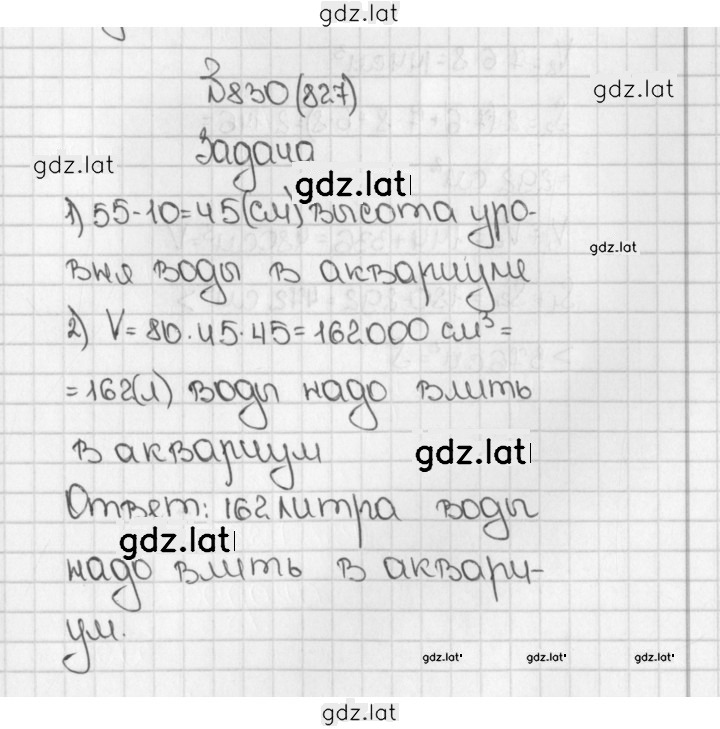 gdz.lat
№830(827)
gdz.lat
Задача
gdz.lat
gdz.lat
1) 55-10=45(см) высота уро-
gdz.lat
вня воды в аквариуме
2) V=80·45·45=162000 см³=
=162(л) воды надо влить
в аквариум
gdz.lat
Ответ: 162 литра воды
gdz.lat
надо влить в аквари-
ум.
gdz.lat gdz.lat gdz.lat
gdz.lat